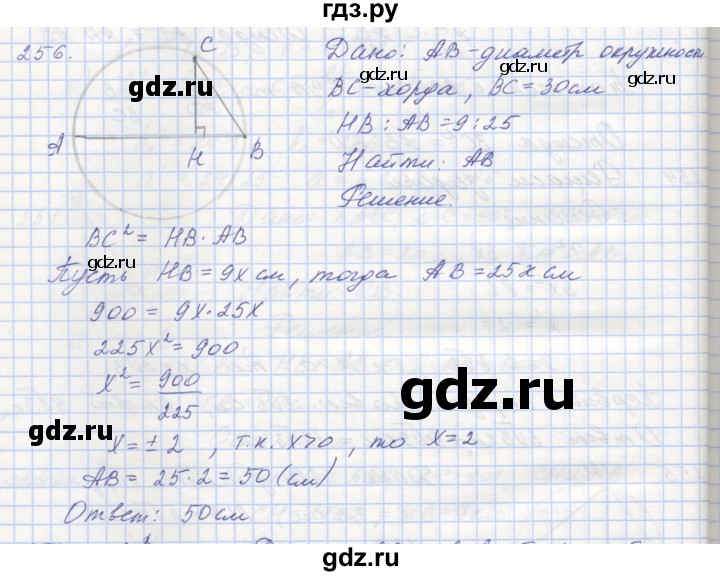 гдз.ру
256.
C
A
H
B
Дано: AB - диаметр окружности
BC - хорда, BC = 30 см
HB : AB = 9 : 25
Найти: AB
Решение.
BC² = HB · AB
Пусть HB = 9x см, тогда AB = 25x см
900 = 9x · 25x
225x² = 900
x² = 900/225
x = ± 2, т.к. x>0, то x = 2
AB = 25 · 2 = 50 (см)
Ответ: 50 см
gdz.ru
gdz.ru
gdz.ru
gdz.ru
gdz.ru
gdz.ru
gdz.ru
gdz.ru
gdz.ru
gdz.ru